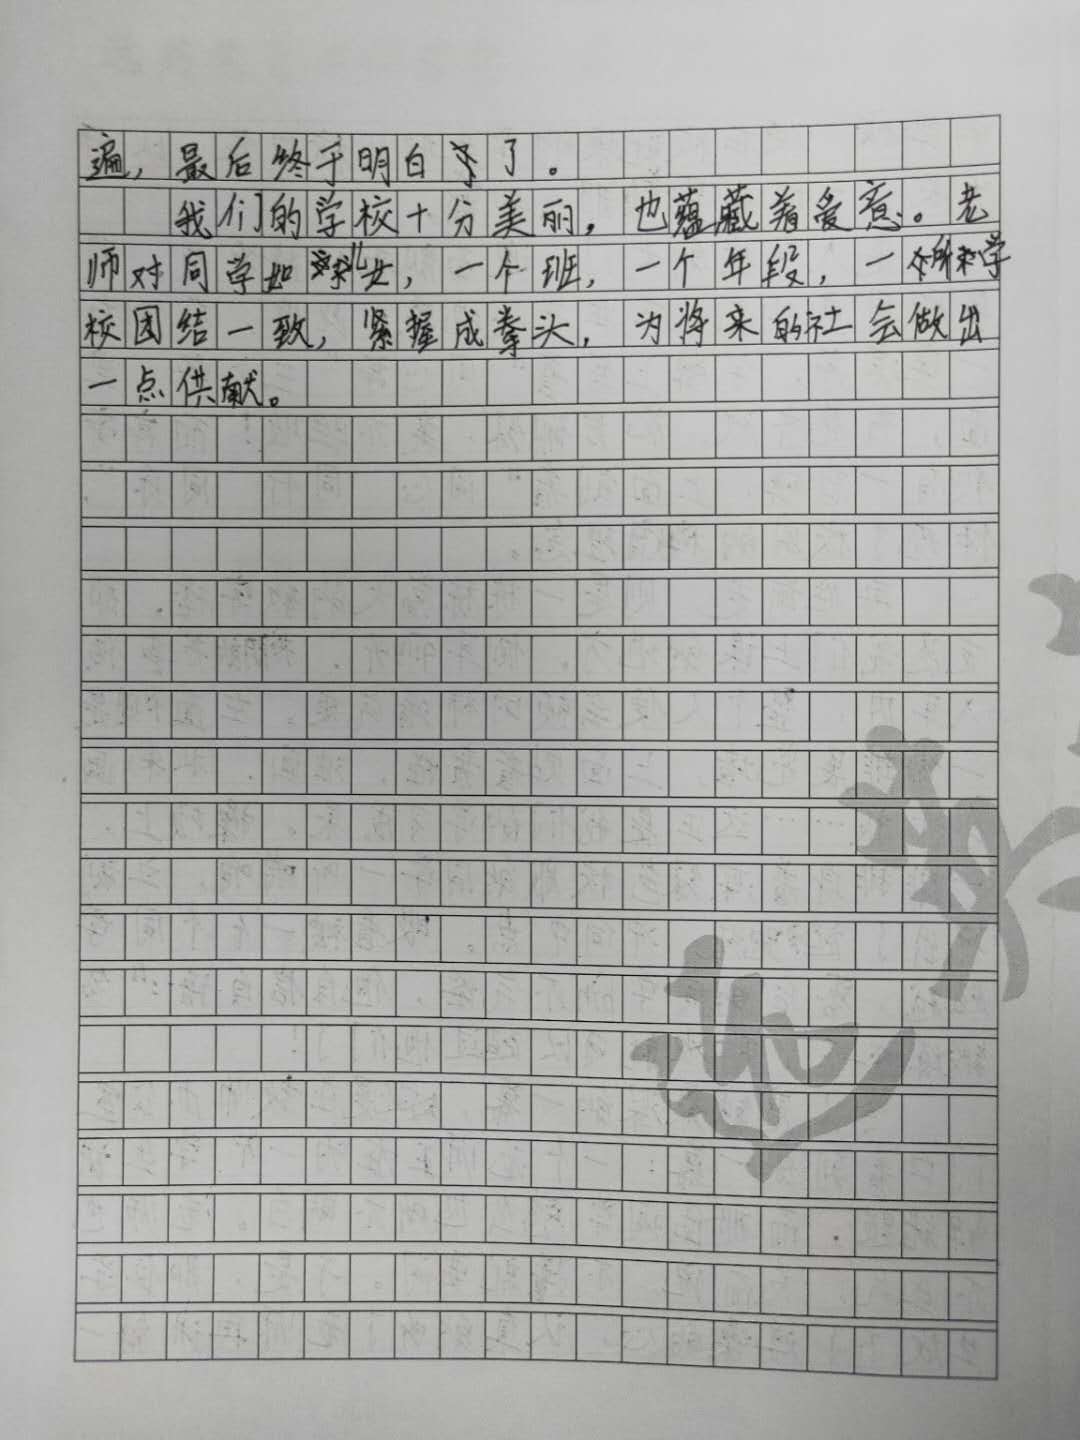 遍，最后终于明白了。
我们的学校十分美丽，也蕴藏着爱意。老
师对同学如儿女，一个班，一个年段，一所学
校团结一致，紧握成拳头，为将来的社会做出
一点供献。